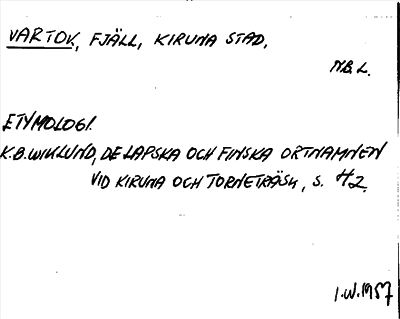 VARTOV, FJÄLL, KIRUNA STAD.
N.B.L.
ETYMOLOGI.
K.B.WIKLUND, DE LAPSKA OCH FINSKA ORTNAMNEN
VID KIRUNA OCH TORNETRÄSK, S. 42.
I.W.1957